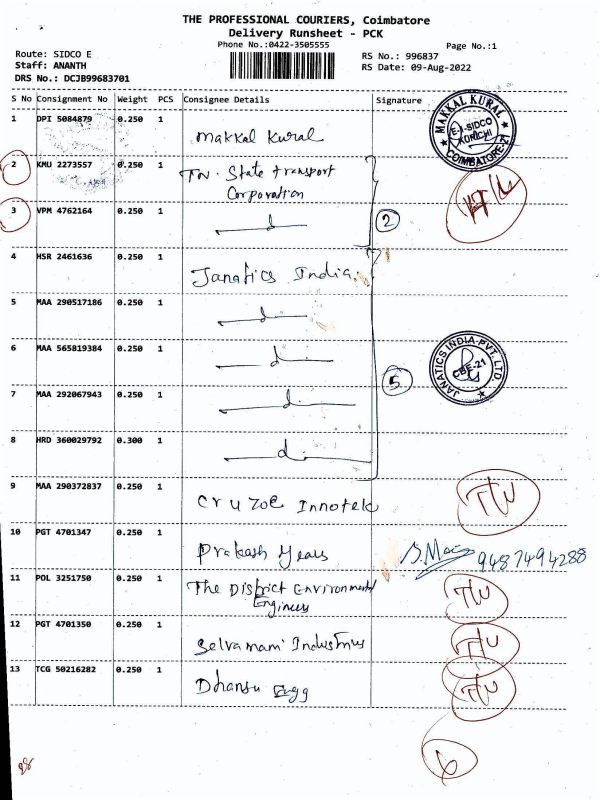 THE PROFESSIONAL COURIERS, Coimbatore
Delivery Runsheet - PCK
Phone No.:0422-3505555
Page No.:1
Route: SIDCO E
Staff: ANANTH
DRS No.: DCJB99683701
RS No.: 996837
RS Date: 09-Aug-2022
S No Consignment No Weight PCS Consignee Details Signature
1 DPI 5084879 0.250 1 Makkal Kural
MAKKAL KURAL
E-1-SIDCO
KURICHI
COIMBATORE
2 KMU 2273557 0.250 1 TN. State Transport
Corporation
3 VPM 4762164 0.250 1
2
4 HSR 2461636 0.250 1 Janatics India.
5 MAA 290517186 0.250 1
6 MAA 565819384 0.250 1
7 MAA 292067943 0.250 1
5
JANATICS INDIA PVT. LTD.
CBE-21
8 HRD 360029792 0.300 1
9 MAA 290372837 0.250 1 Cruzoe Innotek T/U
10 PGT 4701347 0.250 1 Prakash Gears 9487494288
11 POL 3251750 0.250 1 The District Environmental
Engineer T/U
12 PGT 4701350 0.250 1 Selvamani Industries T/U
13 TCG 50216282 0.250 1 Dhansu Engg T/U
6